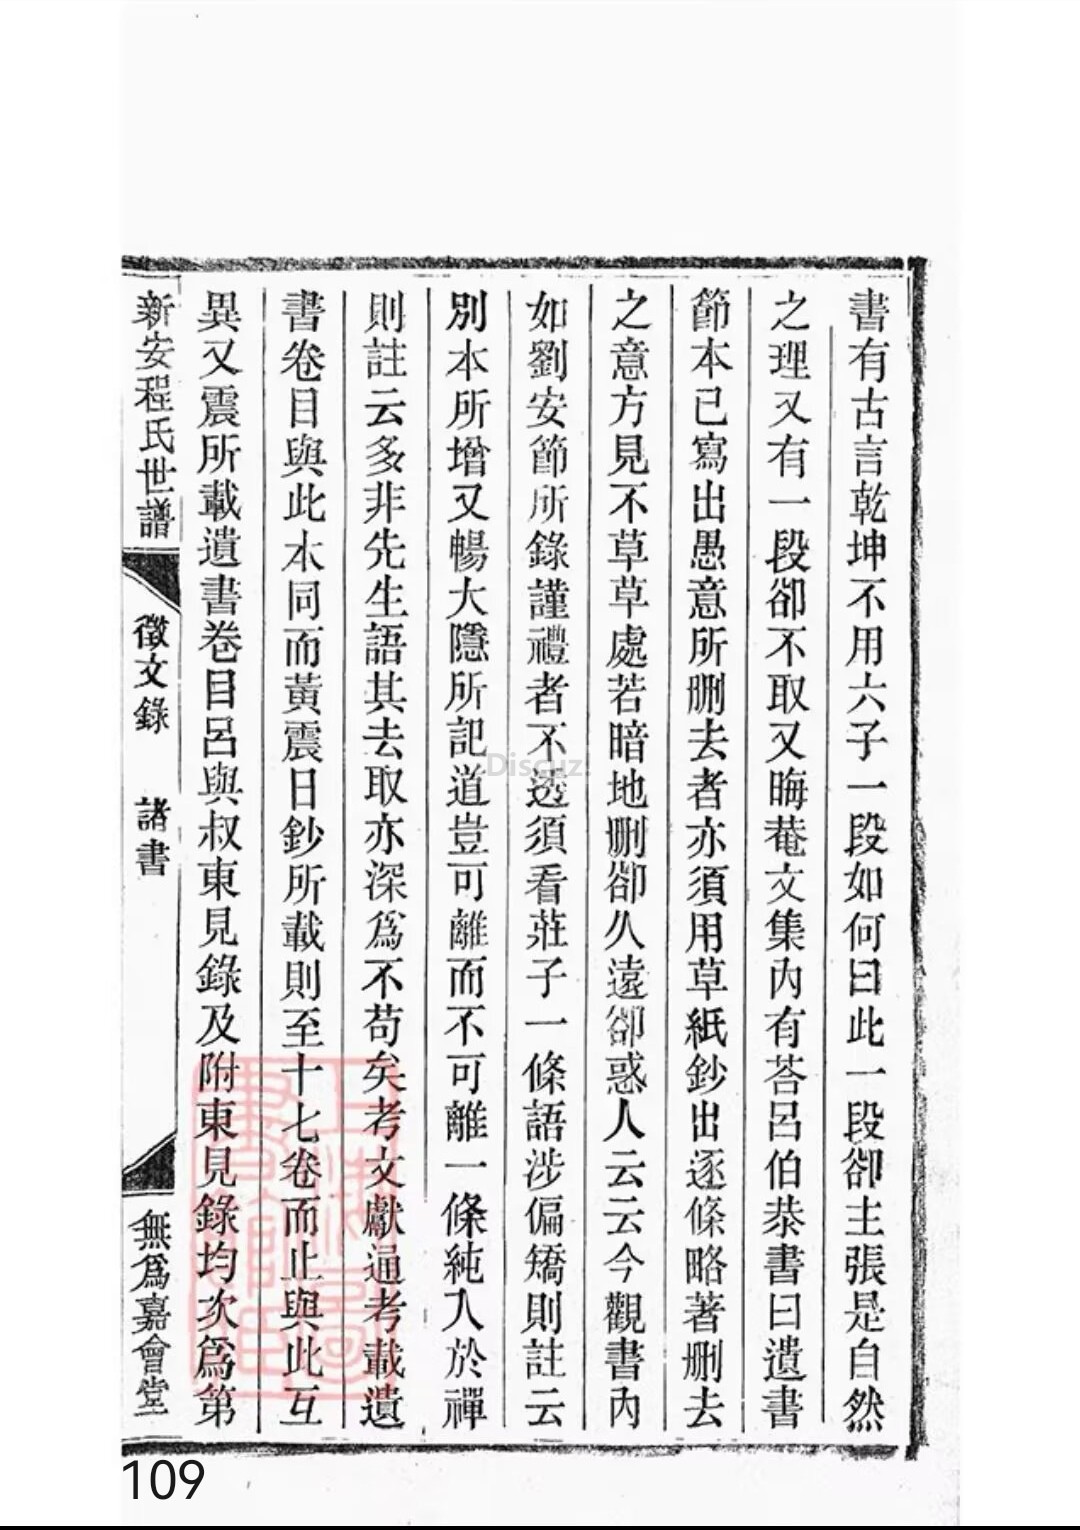 書有古言乾坤不用六子一段如何曰此一段卻主張是自然
之理又有一段卻不取又晦菴文集內有荅呂伯恭書曰遺書
節本已寫出愚意所刪去者亦須用草紙鈔出逐條略著刪去
之意方見不草草處若暗地刪卻久遠卻惑人云云今觀書內
如劉安節所錄謹禮者不透須看莊子一條語涉偏矯則註云
別本所增又暢大隱所記道豈可離而不可離一條純入於禪
則註云多非先生語其去取亦深爲不苟矣考文獻通考載遺
書卷目與此本同而黃震日鈔所載則至十七卷而止與此互
異又震所載遺書卷目呂與叔東見錄及附東見錄均次爲第
新安程氏世譜
徵文錄
諸書
無爲嘉會堂
上海圖書館藏
Discuz!
109